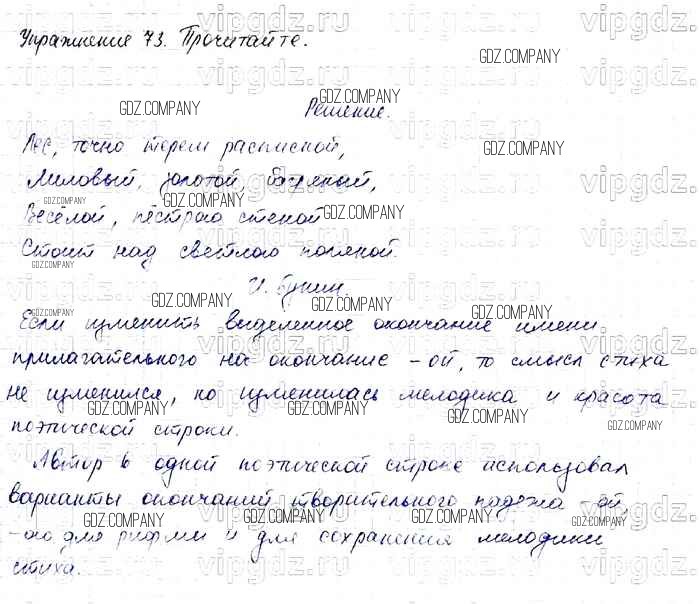 Упражнение 73. Прочитайте.
Решение.
Лес, точно терем расписной,
Лиловый, золотой, багряной,
Весёлой, пёстрою стеной
Стоит над светлою поляной.
И. Бунин.
Если изменить выделенное окончание имени
прилагательного на окончание -ой, то смысл стиха
не изменился, но изменилась мелодика и красота
поэтической строки.
Автор в одной поэтической строке использовал
варианты окончаний творительного падежа -ой,
-ою для рифмы и для сохранения мелодики
стиха.
vipgdz.ru
GDZ.COMPANY